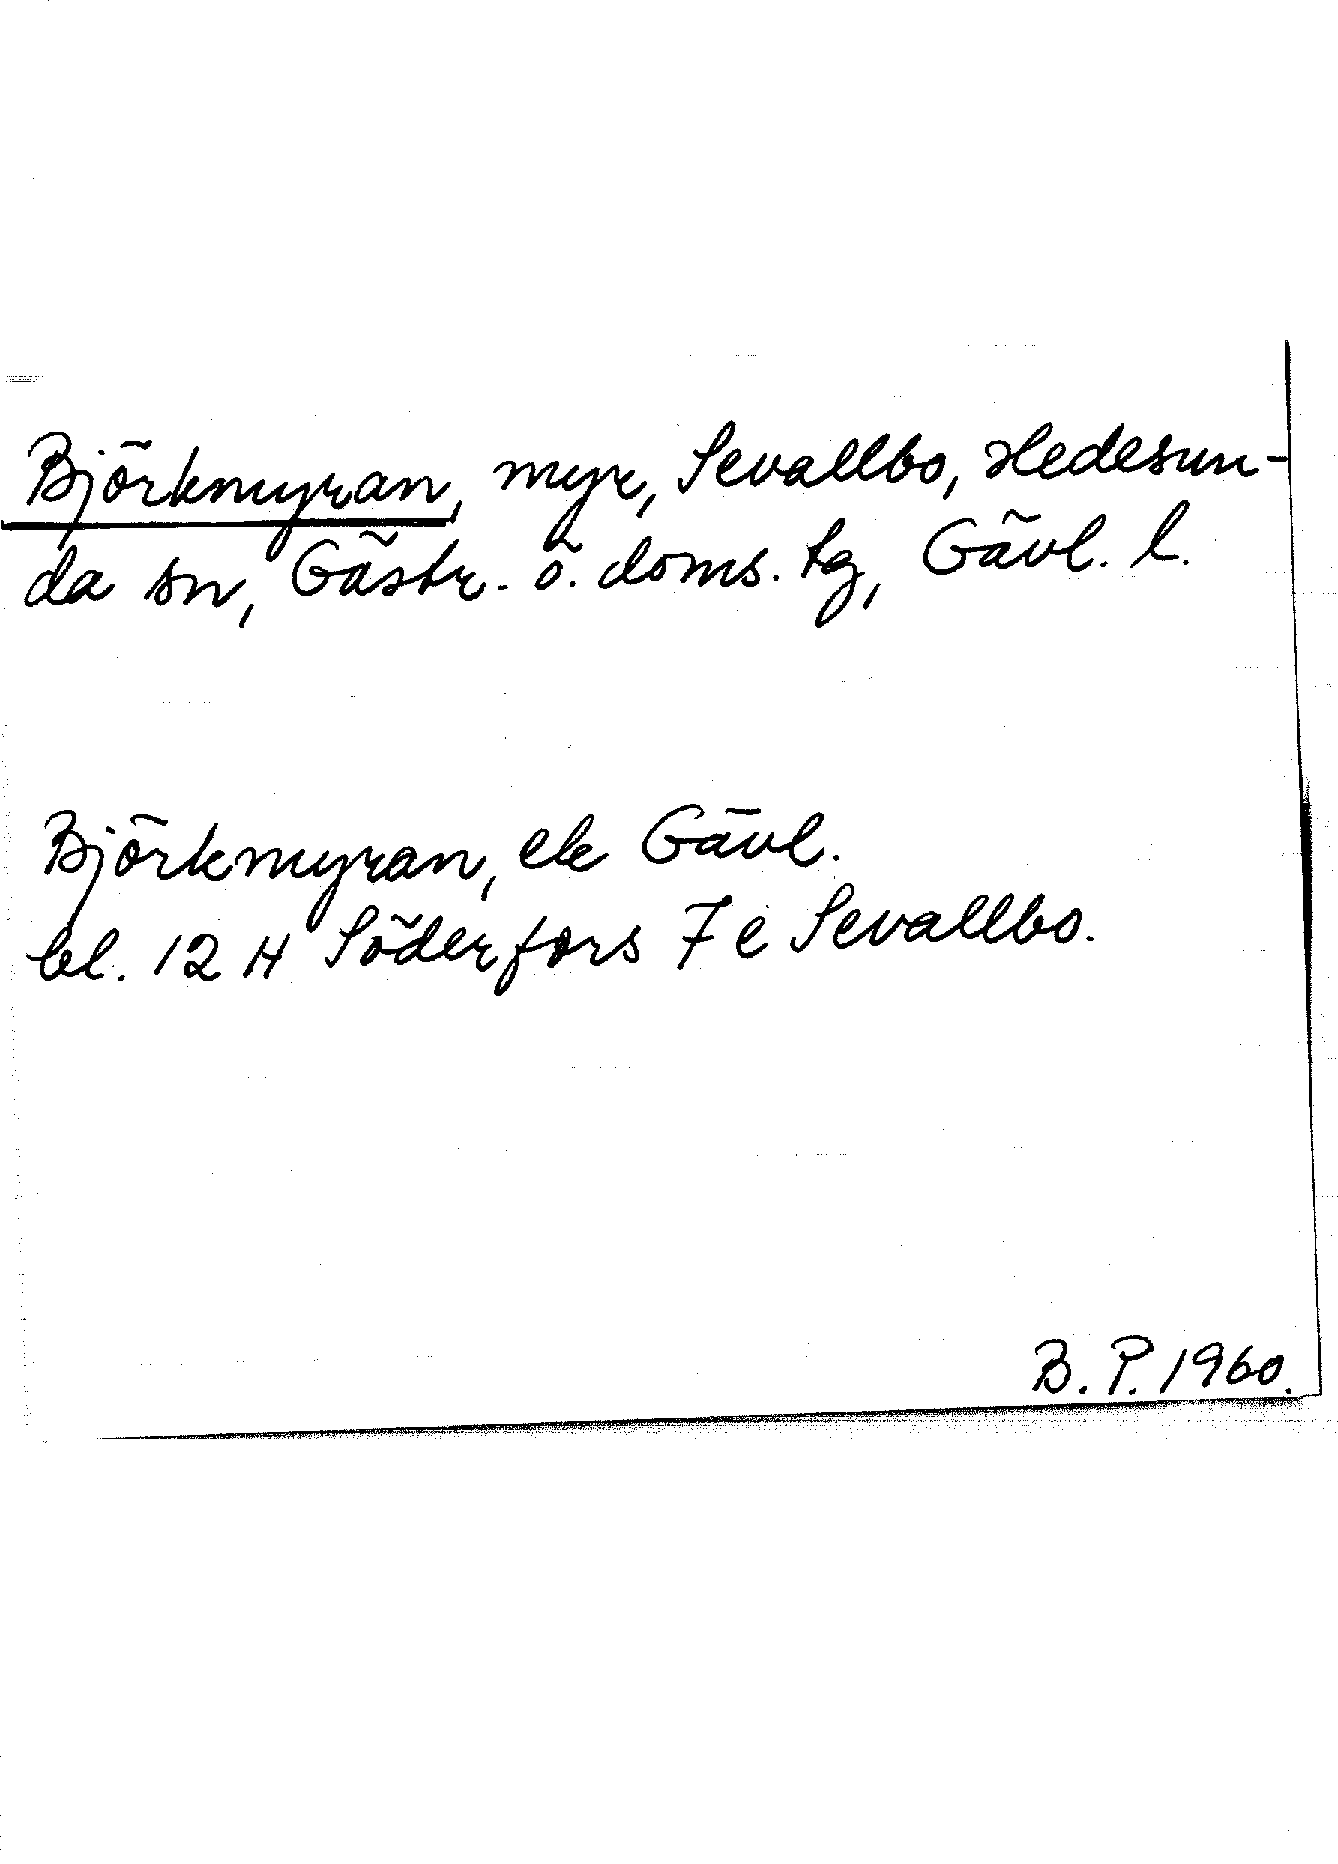 Björkmyran, myr, Sevallbo, Hedesun-
da sn, Gästr. ö. doms. tg, Gävl. l.
Björkmyran, ek Gävl.
bl. 12 H Söderfors 7 e Sevallbo.
B. P. 1960.